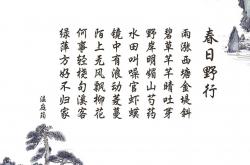 春日野行
雨涨西塘金堤斜
碧草芊芊晴吐芽
野岸明媚山芍药
水田叫噪官虾蟆
镜中有浪动菱蔓
陌上无风飘柳花
何事轻桡句溪客
绿萍方好不归家
温庭筠